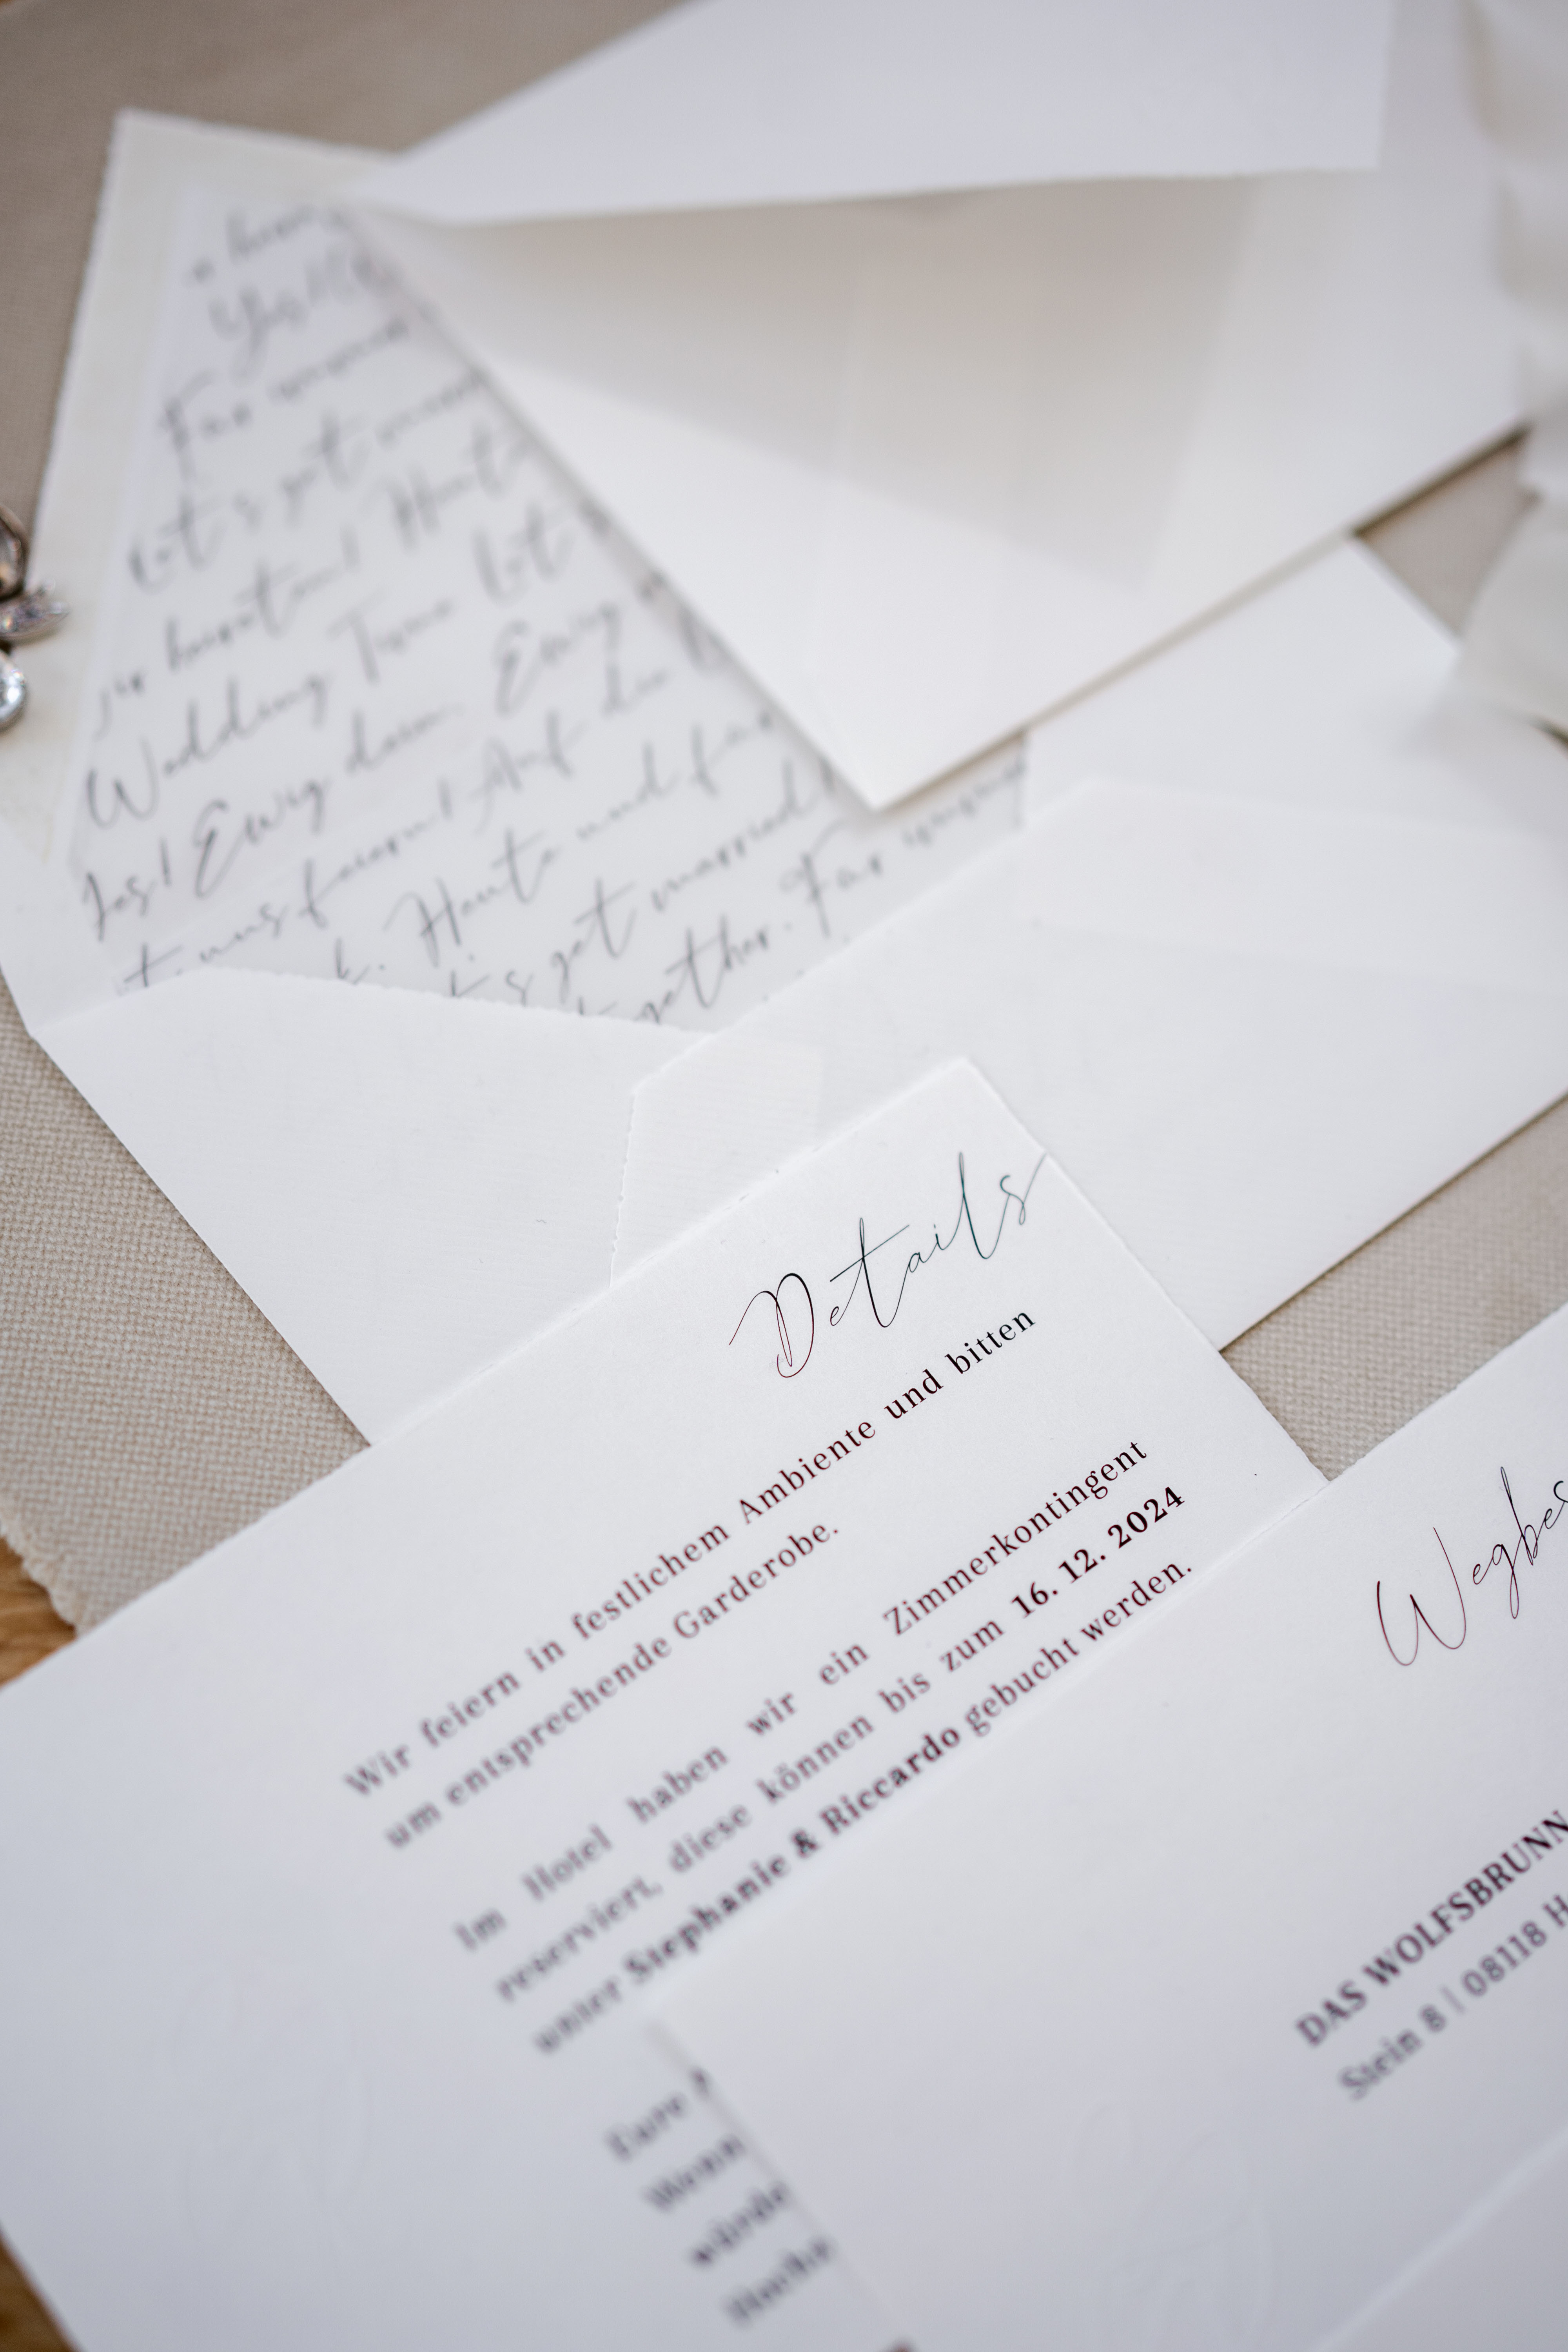 Yes!
Für immer
Let's get
heiraten! Heute
Wedding Time Let
Yes! Ewig dein. Ewig
uns feiern! Auf die
Heute und für
get married!
together. Für immer
Details
Wir feiern in festlichem Ambiente und bitten
um entsprechende Garderobe.
Im Hotel haben wir ein Zimmerkontingent
reserviert, diese können bis zum 16. 12. 2024
unter Stephanie & Riccardo gebucht werden.
Eure
Wenn
würde
Wegbes
DAS WOLFSBRUNN
Stein 8 | 08118 H